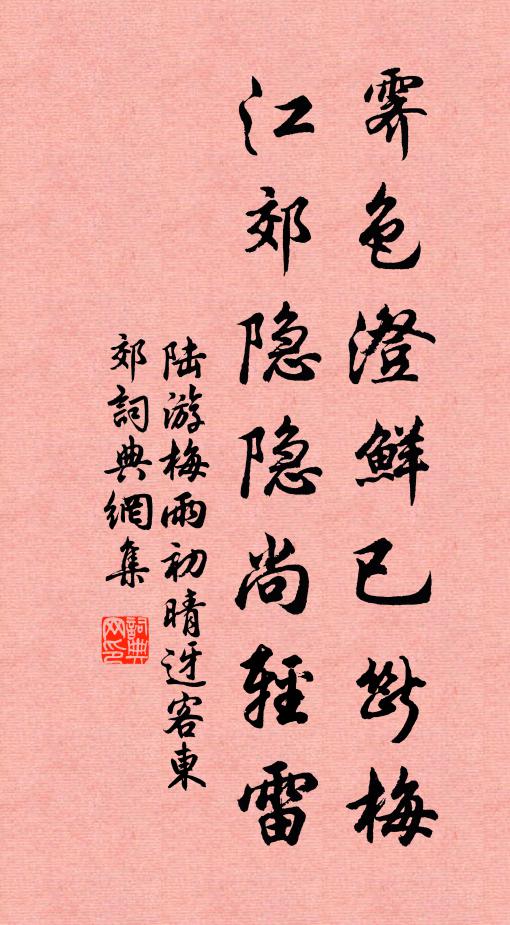 霁色澄鲜已断梅
江郊隐隐尚轻雷
陆游梅雨初晴迓客東
郊詞典網集
詞典网印